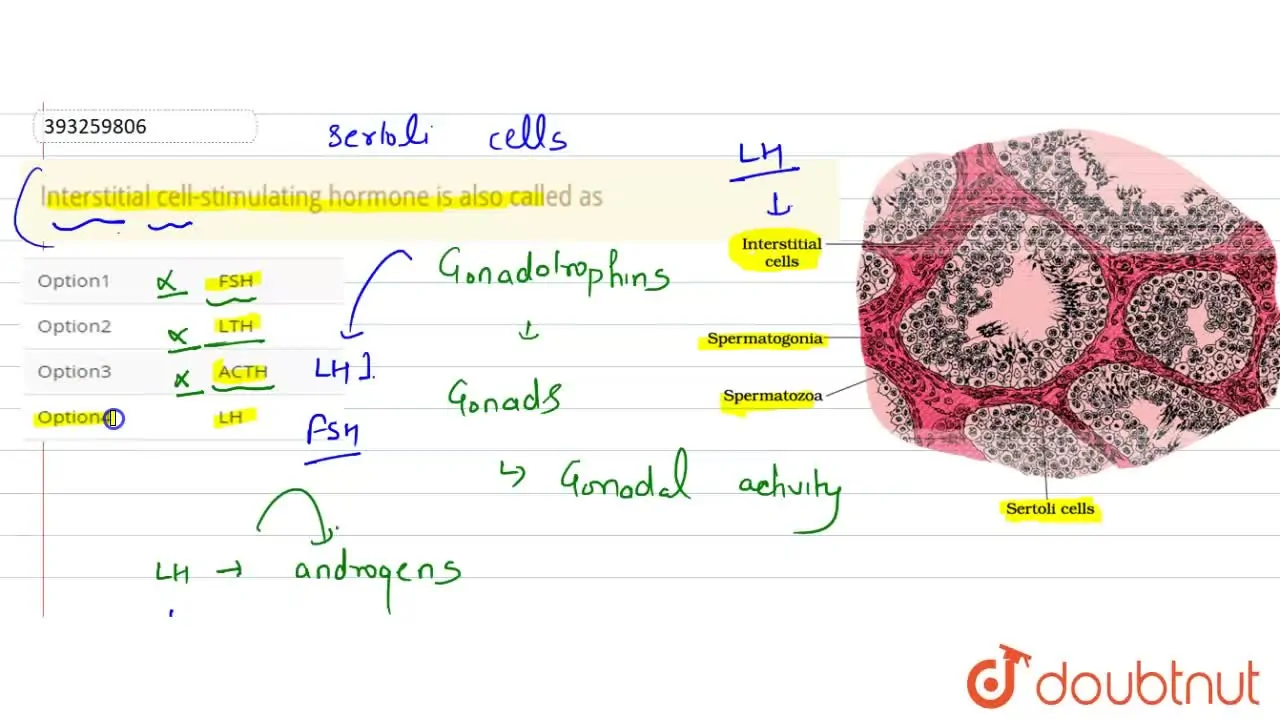 393259806
Sertoli cells
LH
Interstitial cell-stimulating hormone is also called as
Interstitial
cells
Gonadotrophins
Option1 α FSH
Option2 α LTH
Option3 α ACTH
Option4 LH
LH].
FSH
Spermatogonia
Spermatozoa
Gonads
Gonodal activity
Sertoli cells
LH → androgens
doubtnut